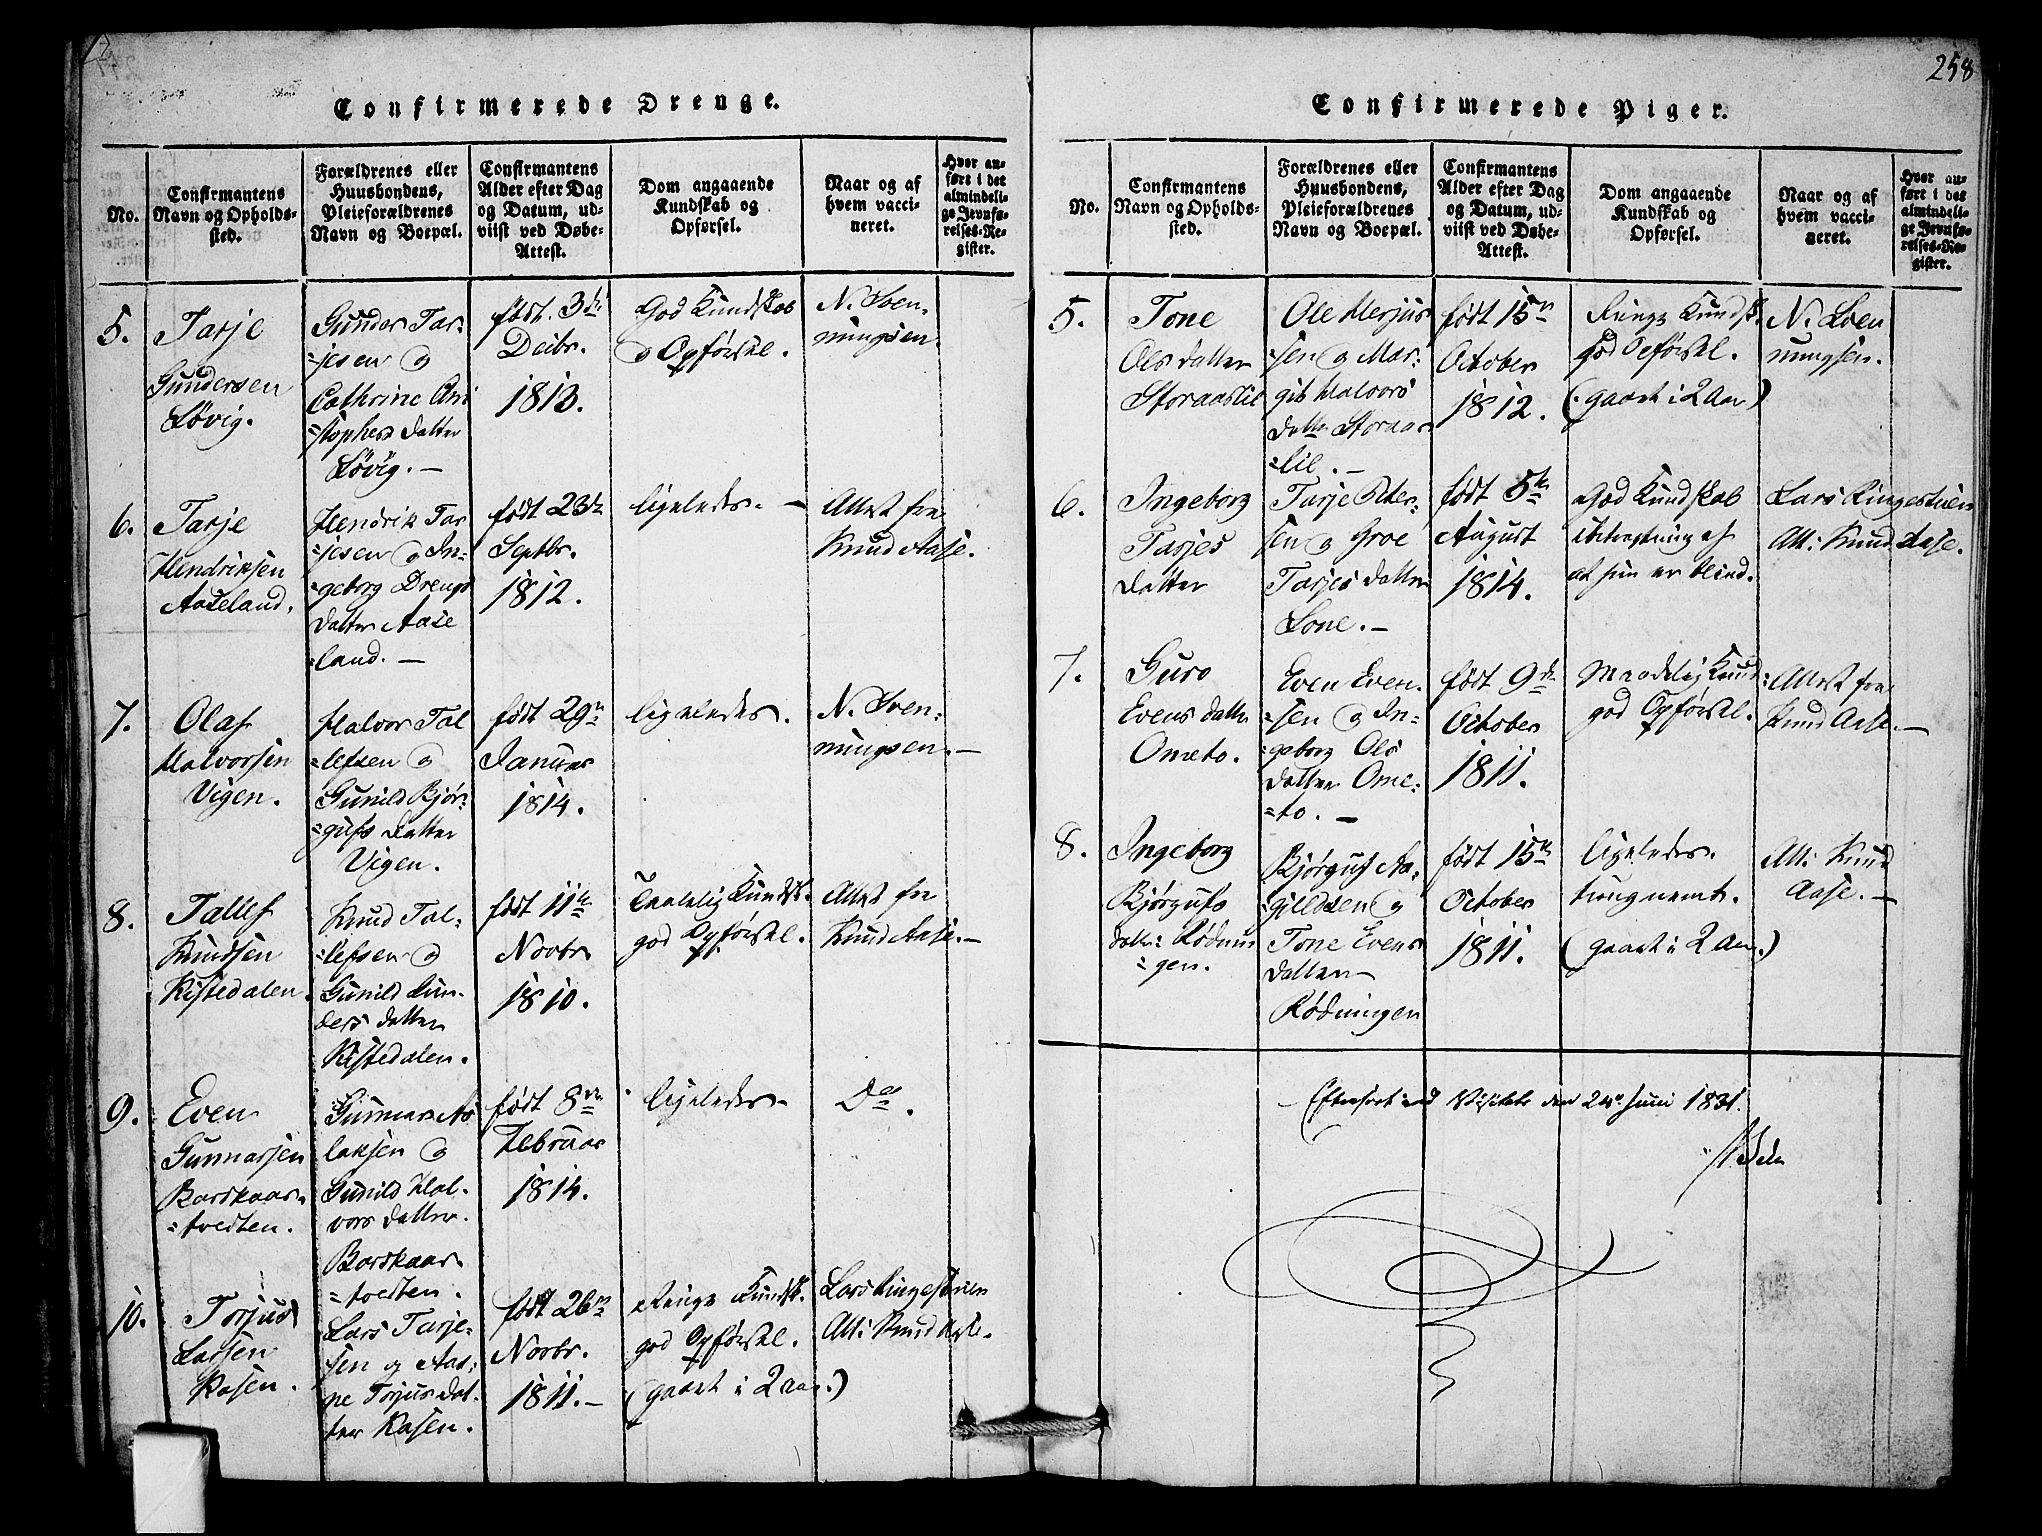 258
Confirmerede Drenge.
No.
Confirmantens
Navn og Opholds-
sted.
Forældrenes eller
Huusbondens,
Pleieforældrenes
Navn og Boepæl.
Confirmantens
Alder efter Dag
og Datum, ud-
viist ved Døbe-
Attest.
Dom angaaende
Kundskab og
Opførsel.
Naar og af
hvem vacci-
neret.
Hvor an-
ført i det
almindeli-
ge Jevnfø-
relses-Re-
gister.
5.
Tarje
Gundersen
Løvig.
Gunder Tar-
=jesen og
Cathrine Chri
=stophers datter
Løvig. —
født. 3die
Decbr.
1813.
God Kundskab
og Opførsel.
N. Sven-
ningsen.
6.
Tarje
Hendriksen
Aaseland.
Hendrik Tar
=jesen og In-
=geborg Drengs
datter Aase
=land. —
født 23de
Septbr.
1812.
ligeledes. —
Attest fra
Knud Aase.
7.
Olaf
Halvorsen
Vigen.
Halvor Tal
=lefsen og
Gunild Bjør-
=gufs datter
Vigen.
født 29n
Januar
1814.
ligeledes.
N. Sven-
ningsen. —
8.
Tallef
Knudsen
Kistedalen.
Knud Tal-
=lefsen og
Gunild Gun-
=ders datter
Kistedalen.
født 11te
Novbr
1810.
Taalelig Kundsk.
god Opførsel.
Attest fra
Knud Aase. —
9.
Even
Gunnarsen
Barskaar-
=tvedten.
Gunnar As
laksen og
Gunild Hal-
vors datter.
Barskaar-
=tvedten.
født 8de
Februar
1814.
ligeledes —
Do.
10.
Torjus
Larsen
Rasen.
Lars Tarje-
sen og Aas-
ne Torjus dat-
ter Rasen.
født 26n
Novbr.
1811. —
Ringe Kundsk.
god Opførsel.
(gaaet i 2 aar.)
Lars Ringestuen
Att: Knud Aase.
Confirmerede Piger.
No.
Confirmantens
Navn og Opholds-
sted.
Forældrenes eller
Huusbondens,
Pleieforældrenes
Navn og Boepæl.
Confirmantens
Alder efter Dag
og Datum, ud-
viist ved Døbe-
Attest.
Dom angaaende
Kundskab og
Opførsel.
Naar og af
hvem vacci-
neret.
Hvor an-
ført i det
almindeli-
ge Jevnfø-
relses-Re-
gister.
5.
Tone
Ols datter
Storaaslil
Ole Herjus
=sen og Mar-
git Halvors
datter Storaas
=lil. —
født 15n
October
1812.
Ringe Kundsk.
god Opførsel.
(gaaet i 2 Aar.)
N. Sven
ningsen.
6.
Ingeborg
Tarjes
datter
Tarje Peter-
sen og Groe
Tarjes datter
Lone. —
født 5te
August
1814.
God Kundskab
i betragtning af
at hun er blind.
Lars Ringestuen
Att: Knud Aase.
7.
Guro
Evens datter
Ometo.
Even Even-
=sen og In-
=geborg Ols
datter Ome-
=to. —
født 9de
October
1811.
Maadelig Kund
god Opførsel.
Attest fra
Knud Aase. —
8.
Ingeborg
Bjørgufs
datter Rødnin
=gen.
Bjørguf As-
gildsen og
Tone Evens
datter —
Rødningen
født 15n
October
1811.
ligeledes.
tungnemt.
(gaaet i 2 Aar.)
Att: Knud
Aase. —
Efterseet ved Visitats den 24n Juni 1831.